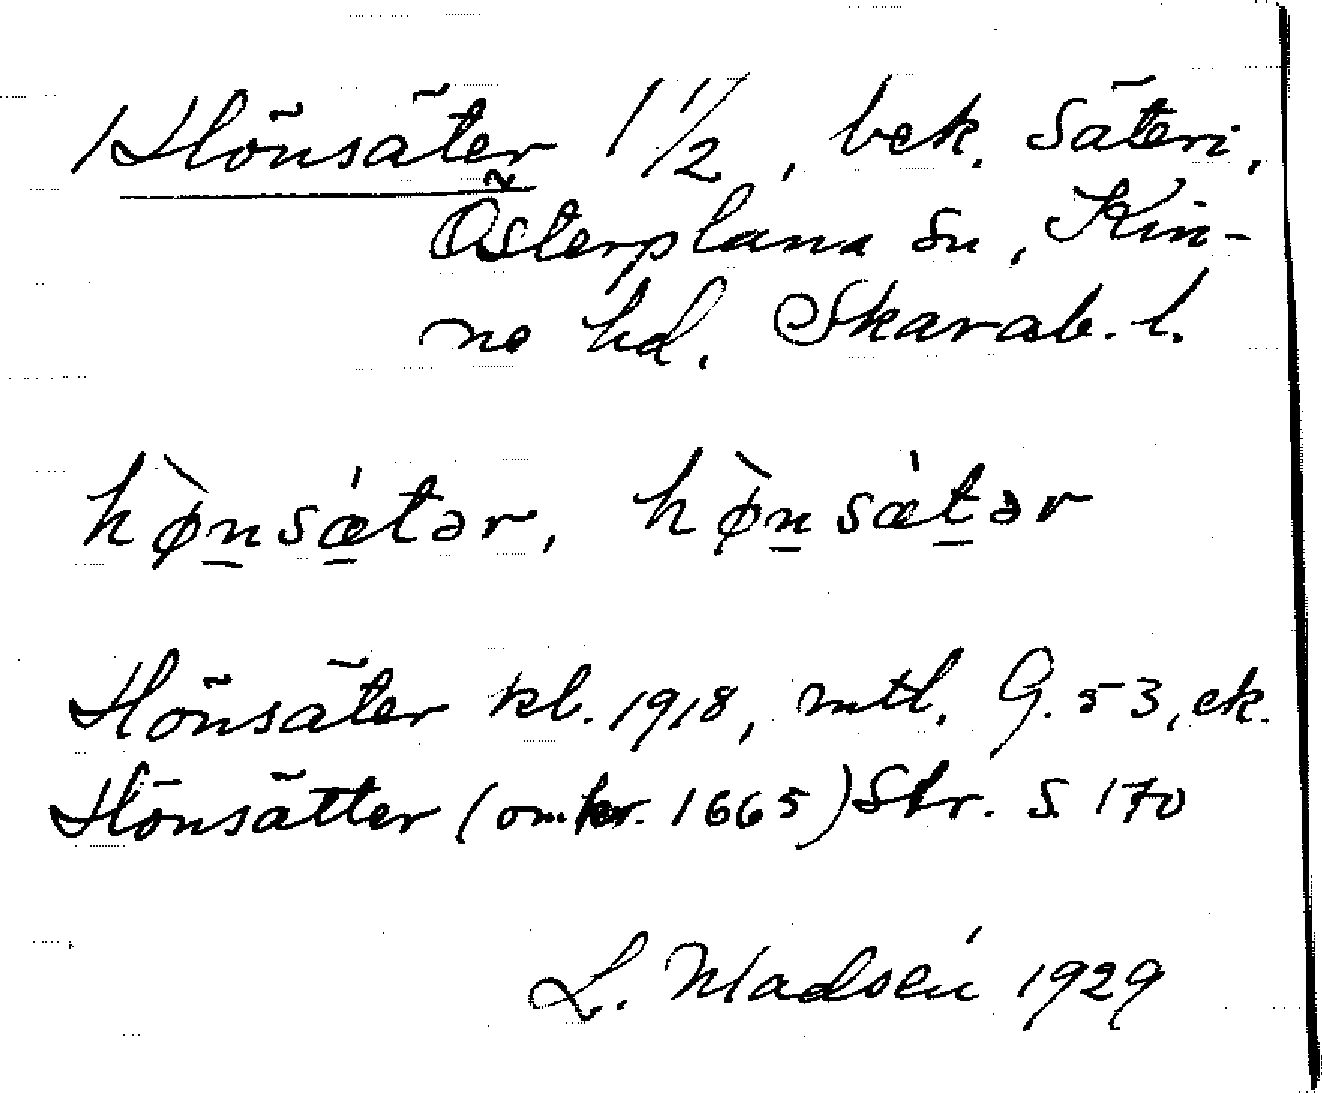 Hönsäter 1 1/2, bek. Säteri,
Österplana sn, Kin-
ne hd. Skarab. l.
hø̀nsǽtər, hø̀nsǽtər
Hönsäter kb. 1918, mtl. G. 53, ek.
Hönsätter (omkr. 1665) Str. S 170
L. Madsén 1929